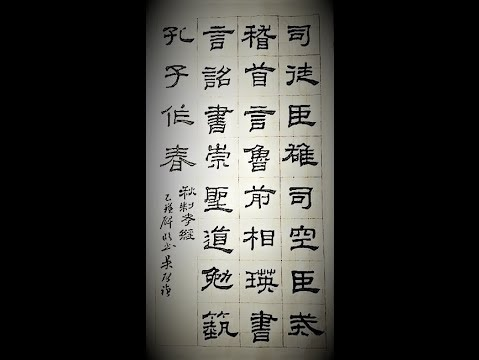 司徒臣雄司空臣戒
稽首言魯前相瑛書
言詔書崇聖道勉藝
孔子作春
秋制孝經
乙瑛碑